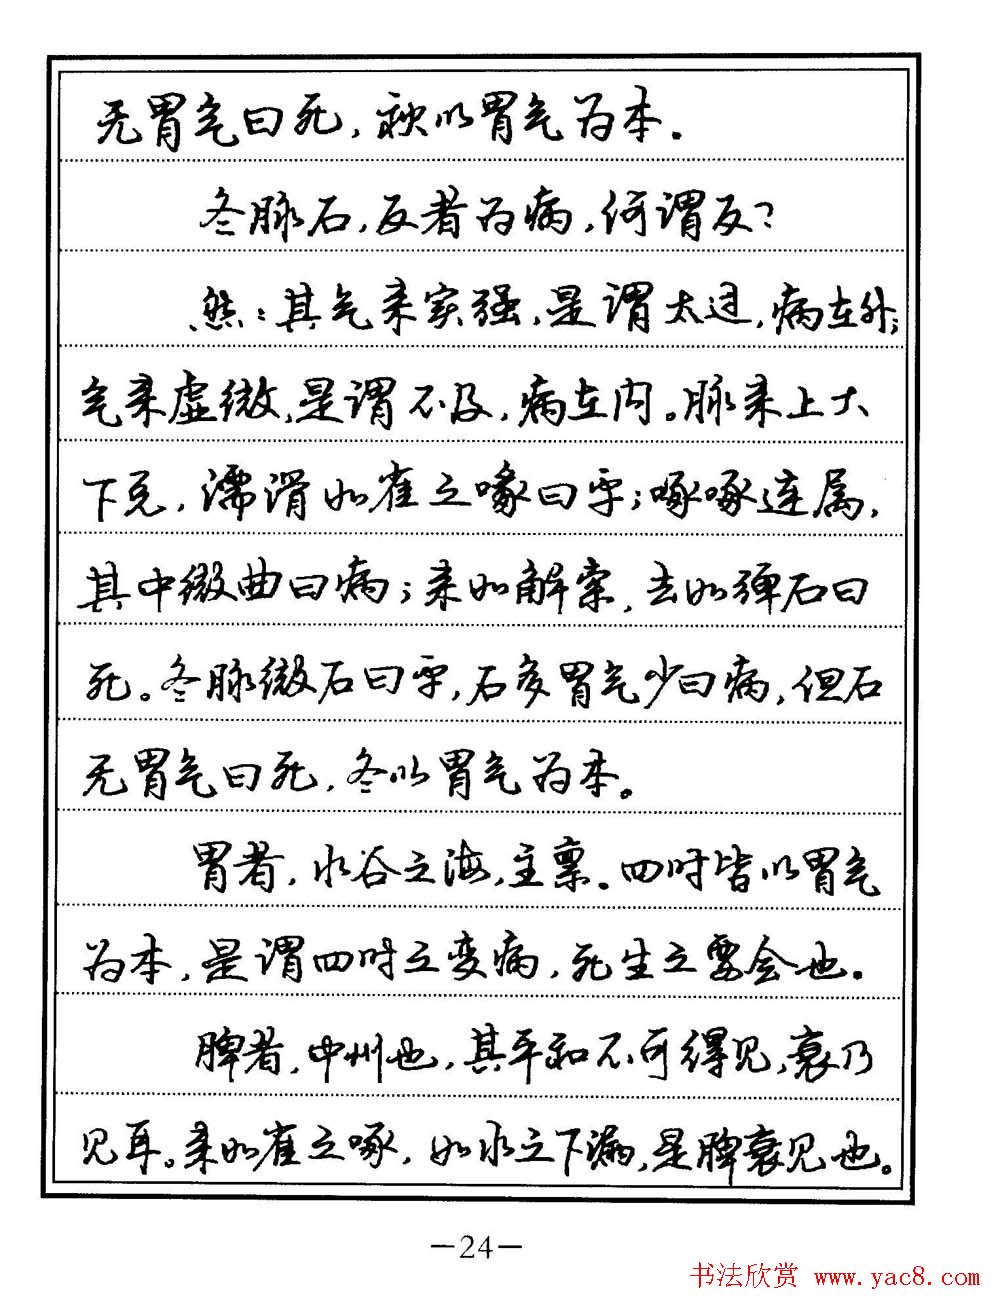 无胃气曰死，秋以胃气为本。
冬脉石，反者为病，何谓反？
然：其气来实强，是谓太过，病在外；
气来虚微，是谓不及，病在内。脉来上大
下兑，濡滑如雀之喙曰平；啄啄连属，
其中微曲曰病；来如解索，去如弹石曰
死。冬脉微石曰平，石多胃气少曰病，但石
无胃气曰死，冬以胃气为本。
胃者，水谷之海，主禀。四时皆以胃气
为本，是谓四时之变病，死生之要会也。
脾者，中州也，其平和不可得见，衰乃
见耳。来如雀之啄，如水之下漏，是脾衰见也。
－24－
书法欣赏 www.yac8.com